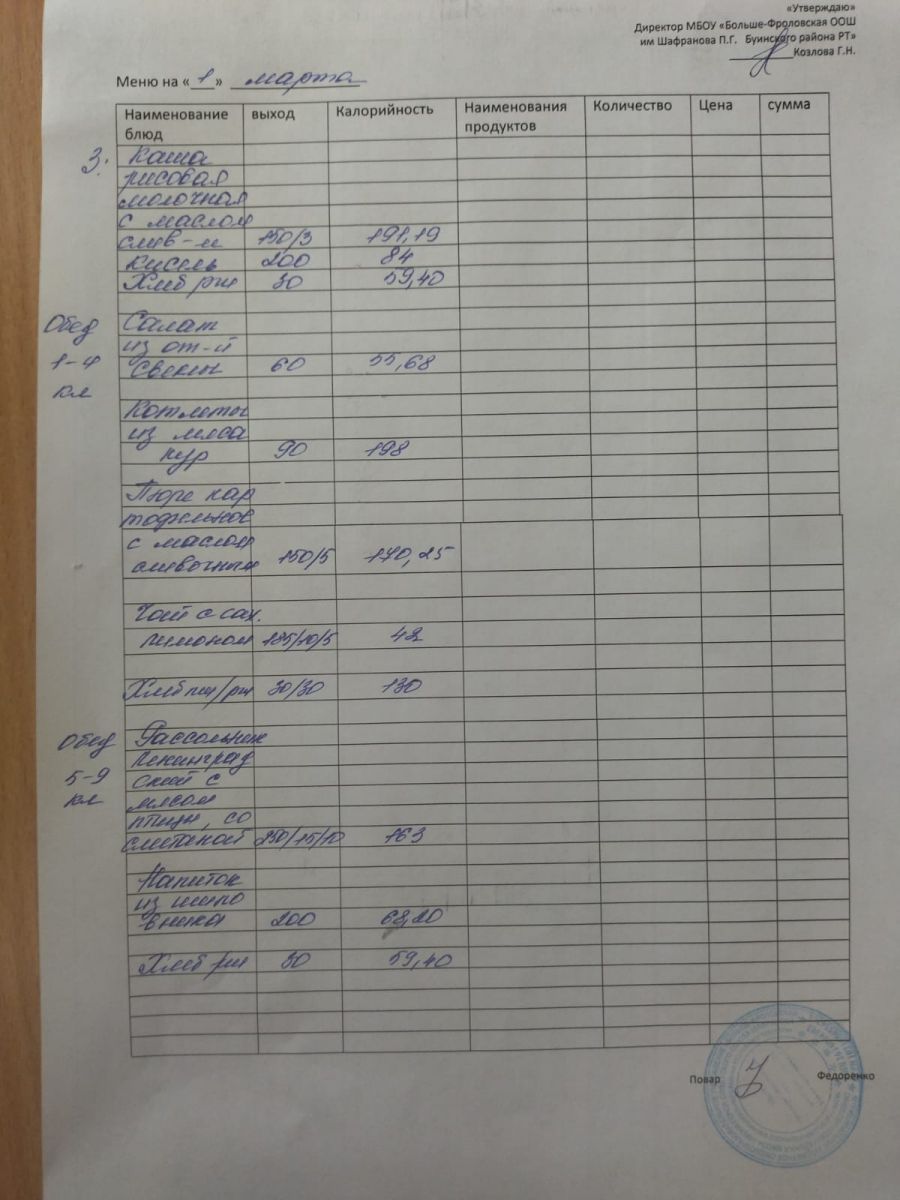 «Утверждаю»
Директор МБОУ «Больше-Фроловская ООШ
им Шафранова П.Г. Буинского района РТ»
Козлова Г.Н.
Меню на «1» марта
Наименование блюд выход Калорийность Наименования продуктов Количество Цена сумма
3. Каша
рисовая
молочная
с маслом
слив-м 150/3 191,19
Кисель 200 84
Хлеб рж 30 59,40
Обед Салат
из от-й
1-4 свеклы 60 55,68
кл
Котлеты
из мяса
кур 90 198
Пюре кар
тофельное
с маслом
сливочным 150/5 170,25
Чай с сах.
лимоном 185/10/5 42
Хлеб пш/рж 30/30 130
Обед Рассольник
Ленинград
5-9 ский с
кл мясом
птицы, со
сметаной 250/15/10 163
Напиток
из шипо
вника 200 68,20
Хлеб рж 30 59,40
Повар Федоренко